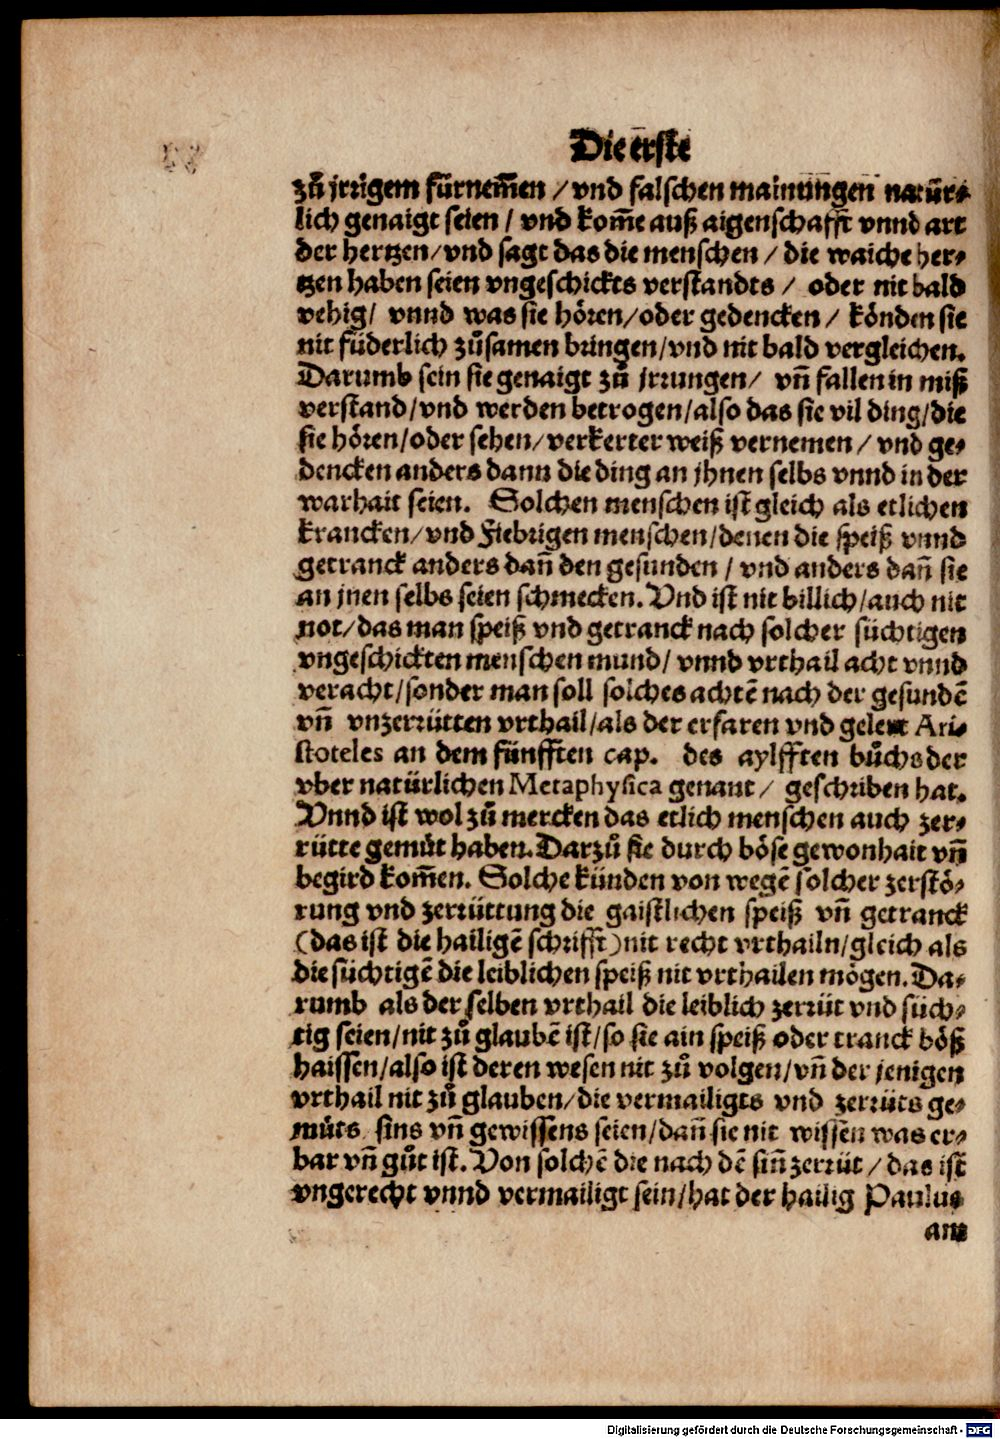 Die erste
zuͦ jrrigem fürnem̃en / vnd falschen mainungen natür⸗
lich genaigt seien / vnd kom̃e auß aigenschafft vnnd art
der hertzen / vnd sagt das die menschen / die waiche her⸗
tzen haben seien vngeschickts verstandts / oder nit bald
vehig / vnnd was sie hören / oder gedencken / könden sie
nit füderlich zuͦsamen bringen / vnd nit bald vergleichen.
Darumb sein sie genaigt zuͦ jrrungen / vñ fallen in miß
verstand / vnd werden betrogen / also das sie vil ding / die
sie hören / oder sehen / verkerter weiß vernemen / vnd ge⸗
dencken anders dann die ding an jhnen selbs vnnd in der
warhait seien. Solchen menschen ist gleich als etlichen
krancken / vnd Fiebrigen menschen / denen die speiß vnnd
getranck anders dañ den gesunden / vnd anders dañ sie
an jnen selbs seien schmecken. Vnd ist nit billich / auch nit
not / das man speiß vnd getranck nach solcher süchtigen
vngeschickten menschen mund / vnnd vrthail acht vnnd
veracht / sonder man soll solches achtẽ nach der gesundẽ
vñ vnzerrütten vrthail / als der erfaren vnd gelert Ari⸗
stoteles an dem fünfften cap. des aylfften buͦchs der
vber natürlichen Metaphysica genant / geschriben hat.
Vnnd ist wol zuͦ mercken das etlich menschen auch zer⸗
rütte gemüt haben. Darzuͦ sie durch böse gewonhait vñ
begird kom̃en. Solche künden von wegẽ solcher zerstö⸗
rung vnd zerrüttung die gaistlichen speiß vñ getranck
(das ist die hailigẽ schrifft) nit recht vrthailn / gleich als
die süchtigẽ die leiblichen speiß nit vrthailen mögen. Da⸗
rumb als der selben vrthail die leiblich zerrüt vnd süch⸗
tig seien / nit zuͦ glaubẽ ist / so sie ain speiß oder tranck böß
haissen / also ist deren wesen nit zuͦ volgen / vñ der jenigen
vrthail nit zuͦ glauben / die vermailigts vnd zerrüts ge⸗
müts sins vñ gewissens seien / dañ sie nit wissen was er⸗
bar vñ guͦt ist. Von solchẽ die nach dẽ siñ zerrüt / das ist
vngerecht vnnd vermailigt sein / hat der hailig Paulus
am
Digitalisierung gefördert durch die Deutsche Forschungsgemeinschaft - DFG